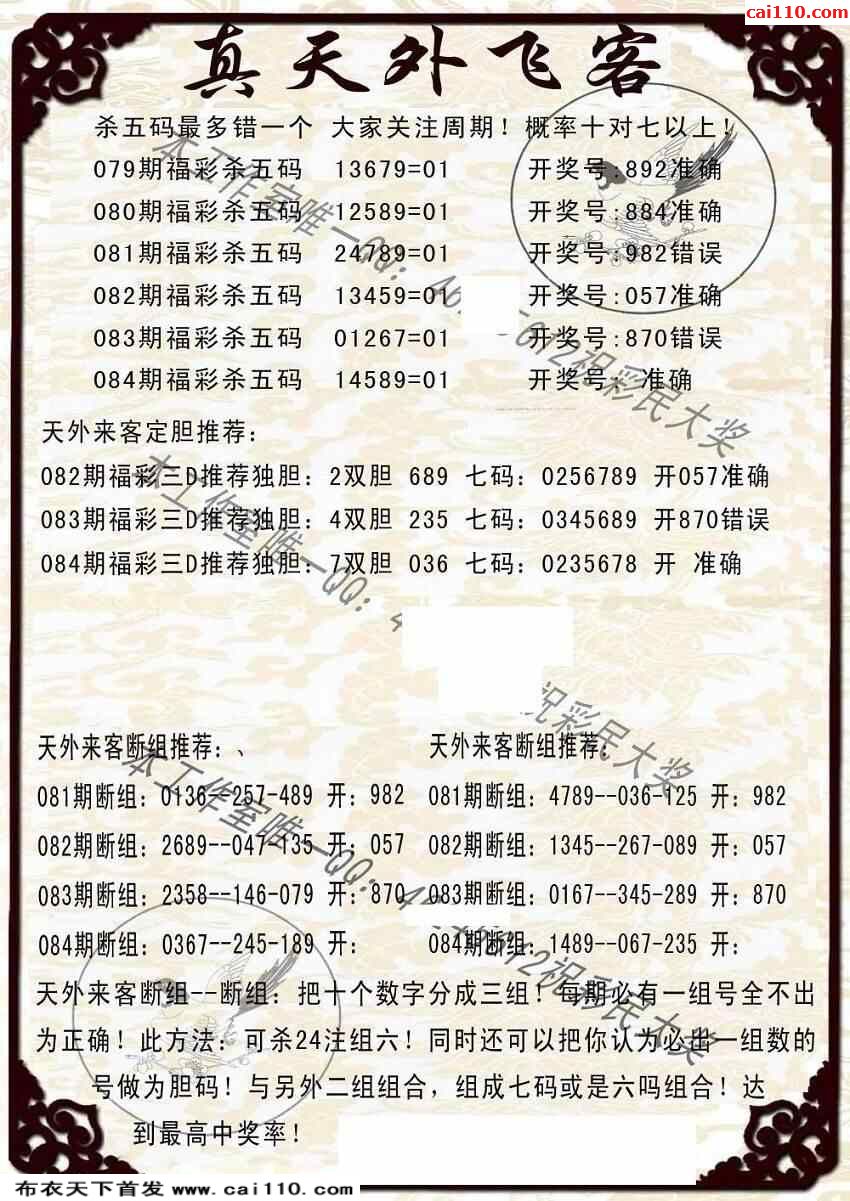 cai110.com
真天外飞客
杀五码最多错一个 大家关注周期！概率十对七以上！
079期福彩杀五码 13679=01 开奖号:892准确
080期福彩杀五码 12589=01 开奖号:884准确
081期福彩杀五码 24789=01 开奖号:982错误
082期福彩杀五码 13459=01 开奖号:057准确
083期福彩杀五码 01267=01 开奖号:870错误
084期福彩杀五码 14589=01 开奖号: 准确
天外来客定胆推荐：
082期福彩三D推荐独胆：2双胆 689 七码：0256789 开057准确
083期福彩三D推荐独胆：4双胆 235 七码：0345689 开870错误
084期福彩三D推荐独胆：7双胆 036 七码：0235678 开 准确
天外来客断组推荐：、 天外来客断组推荐：
081期断组：0136--257-489 开：982 081期断组：4789--036-125 开：982
082期断组：2689--047-135 开：057 082期断组：1345--267-089 开：057
083期断组：2358--146-079 开：870 083期断组：0167--345-289 开：870
084期断组：0367--245-189 开： 084期断组：1489--067-235 开：
天外来客断组--断组：把十个数字分成三组！每期必有一组号全不出
为正确！此方法：可杀24注组六！同时还可以把你认为必出一组数的
号做为胆码！与另外二组组合，组成七码或是六吗组合！达
到最高中奖率！
本工作室唯一QQ：
祝彩民大奖
本工作室唯一QQ：
祝彩民大奖
本工作室唯一QQ：
祝彩民大奖
布衣天下首发 www.cai110.com